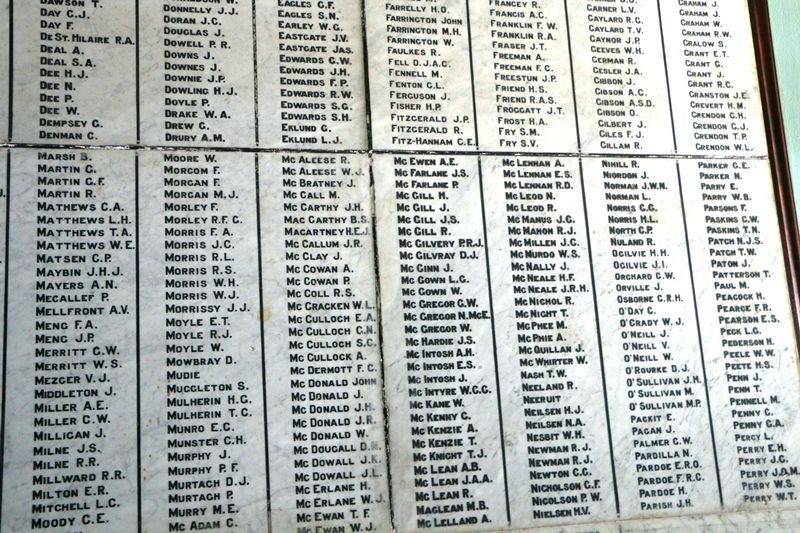 DAWSON T.
DAY C.J.
DAY F.
DE ST. HILAIRE R.A.
DEAL A.
DEAL S.A.
DEE H.J.
DEE N.
DEE P.
DEE W.
DEMPSEY G.
DENMAN C.
DONNELLY J.J.
DORAN J.C.
DOUGLAS J.
DOWELL P.R.
DOWNS J.
DOWNES J.
DOWNIE J.P.
DOWLING H.J.
DOYLE P.
DRAKE W.A.
DREW G.
DRURY A.M.
EAGLES C.F.
EAGLES S.N.
EARLEY W.G.
EASTGATE J.V.
EASTGATE JAS.
EDWARDS G.W.
EDWARDS J.H.
EDWARDS F.P.
EDWARDS R.W.
EDWARDS S.G.
EDWARDS S.H.
EKLUND G.
EKLUND L.J.
FARRELLY H.O.
FARRINGTON JOHN
FARRINGTON M.H.
FARRINGTON W.
FAULKES R.
FELL D.J.A.C.
FENNELL M.
FENTON C.L.
FERGUSON J.
FISHER H.P.
FITZGERALD J.P.
FITZGERALD R.
FITZ-HANNAM C.E.
FRANCEY R.
FRANCIS A.C.
FRANKLIN F.W.
FRANKLIN R.A.
FRASER J.T.
FREEMAN A.
FREEMAN F.C.
FREESTUN J.P.
FRIEND H.S.
FRIEND R.A.S.
FROGGATT J.T.
FROST H.A.
FRY S.M.
FRY S.V.
GARNER L.V.
GAYLARD R.G.
GAYLARD T.V.
GAYNOR J.P.
GEEVES W.H.
GERMAN R.
GESLER J.A.
GIBBON J.
GIBSON A.C.
GIBSON A.S.D.
GIBSON O.
GILBERT J.
GILES F.J.
GILLAM R.
GRAHAM J.
GRAHAM J.
GRAHAM W.
GRAHAM R.W.
GRALOW S.
GRANT E.T.
GRANT G.
GRANT J.
GRANT R.C.
GRANSTON J.E.
GREVERT H.M.
GRENDON C.H.
GRENDON C.J.
GRENDON T.P.
GRENDON W.L.
MARSH B.
MARTIN G.
MARTIN G.F.
MARTIN R.
MATHEWS C.A.
MATTHEWS L.H.
MATTHEWS T.A.
MATTHEWS W.E.
MATSEN C.P.
MAYBIN J.H.J.
MAYERS A.N.
MECALLEF P.
MELLFRONT A.V.
MENG F.A.
MENG J.P.
MERRITT G.W.
MERRITT W.S.
MEZGER V.J.
MIDDLETON J.
MILLER A.E.
MILLER C.W.
MILLIGAN J.
MILNE J.S.
MILNE R.R.
MILLWARD R.R.
MILTON E.R.
MITCHELL L.C.
MOODY C.E.
MOORE W.
MORGOM F.
MORGAN F.
MORGAN M.J.
MORLEY F.
MORLEY R.F.C.
MORRIS F.A.
MORRIS J.C.
MORRIS R.L.
MORRIS R.S.
MORRIS W.H.
MORRIS W.J.
MORRISSY J.J.
MOYLE E.T.
MOYLE R.J.
MOYLE W.
MOWBRAY D.
MUDIE
MUGGLETON S.
MULHERIN H.G.
MULHERIN T.C.
MUNRO E.C.
MUNSTER C.H.
MURPHY J.
MURPHY P.F.
MURTACH D.J.
MURTACH P.
MURRY M.E.
MC ADAM C.
MC ALEESE R.
MC ALEESE W.J.
MC BRATNEY J.
MC CALL M.
MC CARTHY J.H.
MAC CARTHY B.S.
MACARTNEY H.E.J.
MC CALLUM J.R.
MC CLAY J.
MC COWAN A.
MC COWAN P.
MC COLL R.S.
MC CRACKEN W.L.
MC CULLOCH E.A.
MC CULLOCH C.N.
MC CULLOCH S.C.
MC CULLOCK A.
MC DERMOTT F.C.
MC DONALD JOHN
MC DONALD J.
MC DONALD J.H.
MC DONALD J.R.
MC DONALD W.
MC DOUGALL D.M.
MC DOWALL J.K.
MC DOWALL J.L.
MC ERLANE H.
MC ERLANE W.J.
MC EWAN T.F.
MC EWAN W.J.
MC EWEN A.E.
MC FARLANE J.S.
MC FARLANE P.
MC GILL H.
MC GILL J.
MC GILL J.S.
MC GILL R.
MC GILVERY P.R.J.
MC GILVRAY D.J.
MC GINN J.
MC GOWN L.G.
MC GOWN W.
MC GREGOR G.W.
MC GREGOR N.MCE.
MC GREGOR W.
MC HARDIE J.S.
MC INTOSH A.H.
MC INTOSH E.S.
MC INTOSH J.
MC INTYRE W.C.C.
MC KANE W.
MC KENNY G.
MC KENZIE A.
MC KENZIE T.
MC KNIGHT T.J.
MC LEAN A.B.
MC LEAN J.A.A.
MC LEAN R.
MACLEAN M.B.
MC LELLAND A.
MC LENNAN A.
MC LENNAN E.S.
MC LENNAN R.D.
MC LEOD N.
MC LEOD R.
MC MANUS J.G.
MC MAHON R.J.
MC MILLEN J.C.
MC MURDO W.S.
MC NALLY J.
MC NEALE H.F.
MC NEALE J.R.H.
MC NICHOL R.
MC NIGHT T.
MC PHEE M.
MC PHIE A.
MC QUILLAN J.
MC WHIRTER W.
NASH T.W.
NEELAND R.
NEERUIT
NEILSEN H.J.
NEILSEN N.A.
NESBIT W.H.
NEWMAN R.J.
NEWMAN R.J.
NEWTON C.C.
NICHOLSON C.F.
NICOLSON P.W.
NIELSEN H.V.
NIHILL R.
NIORDON J.
NORMAN J.W.N.
NORMAN L.
NORRIS C.C.
NORRIS H.L.
NORTH C.P.
NULAND R.
OGILVIE H.H.
OGILVIE J.I.
ORCHARD G.W.
ORVILLE J.
OSBORNE C.R.H.
O'DAY C.
O'GRADY W.J.
O'NEILL J.
O'NEILL V.
O'NEILL W.
O'ROURKE D.J.
O'SULLIVAN J.H.
O'SULLIVAN M.
O'SULLIVAN M.P.
PACKIT E.
PAGAN J.
PALMER G.W.
PARDILLA N.
PARDOE E.R.O.
PARDOE F.R.C.
PARDOE H.
PARISH J.H.
PARKER G.E.
PARKER N.
PARRY E.
PARRY W.B.
PARSONS F.
PASKINS G.W.
PASKINS T.N.
PATCH N.J.S.
PATCH T.W.
PATON J.
PATTERSON T.
PAUL M.
PEACOCK H.
PEARCE F.R.
PEARSON E.S.
PECK L.G.
PEDERSON H.
PEELE W.W.
PEETE H.S.
PENN J.
PENN T.
PENNELL M.
PENNY C.
PENNY G.A.
PERCY L.
PERRY E.H.
PERRY J.C.
PERRY J.D.M.
PERRY W.S.
PERRY W.T.